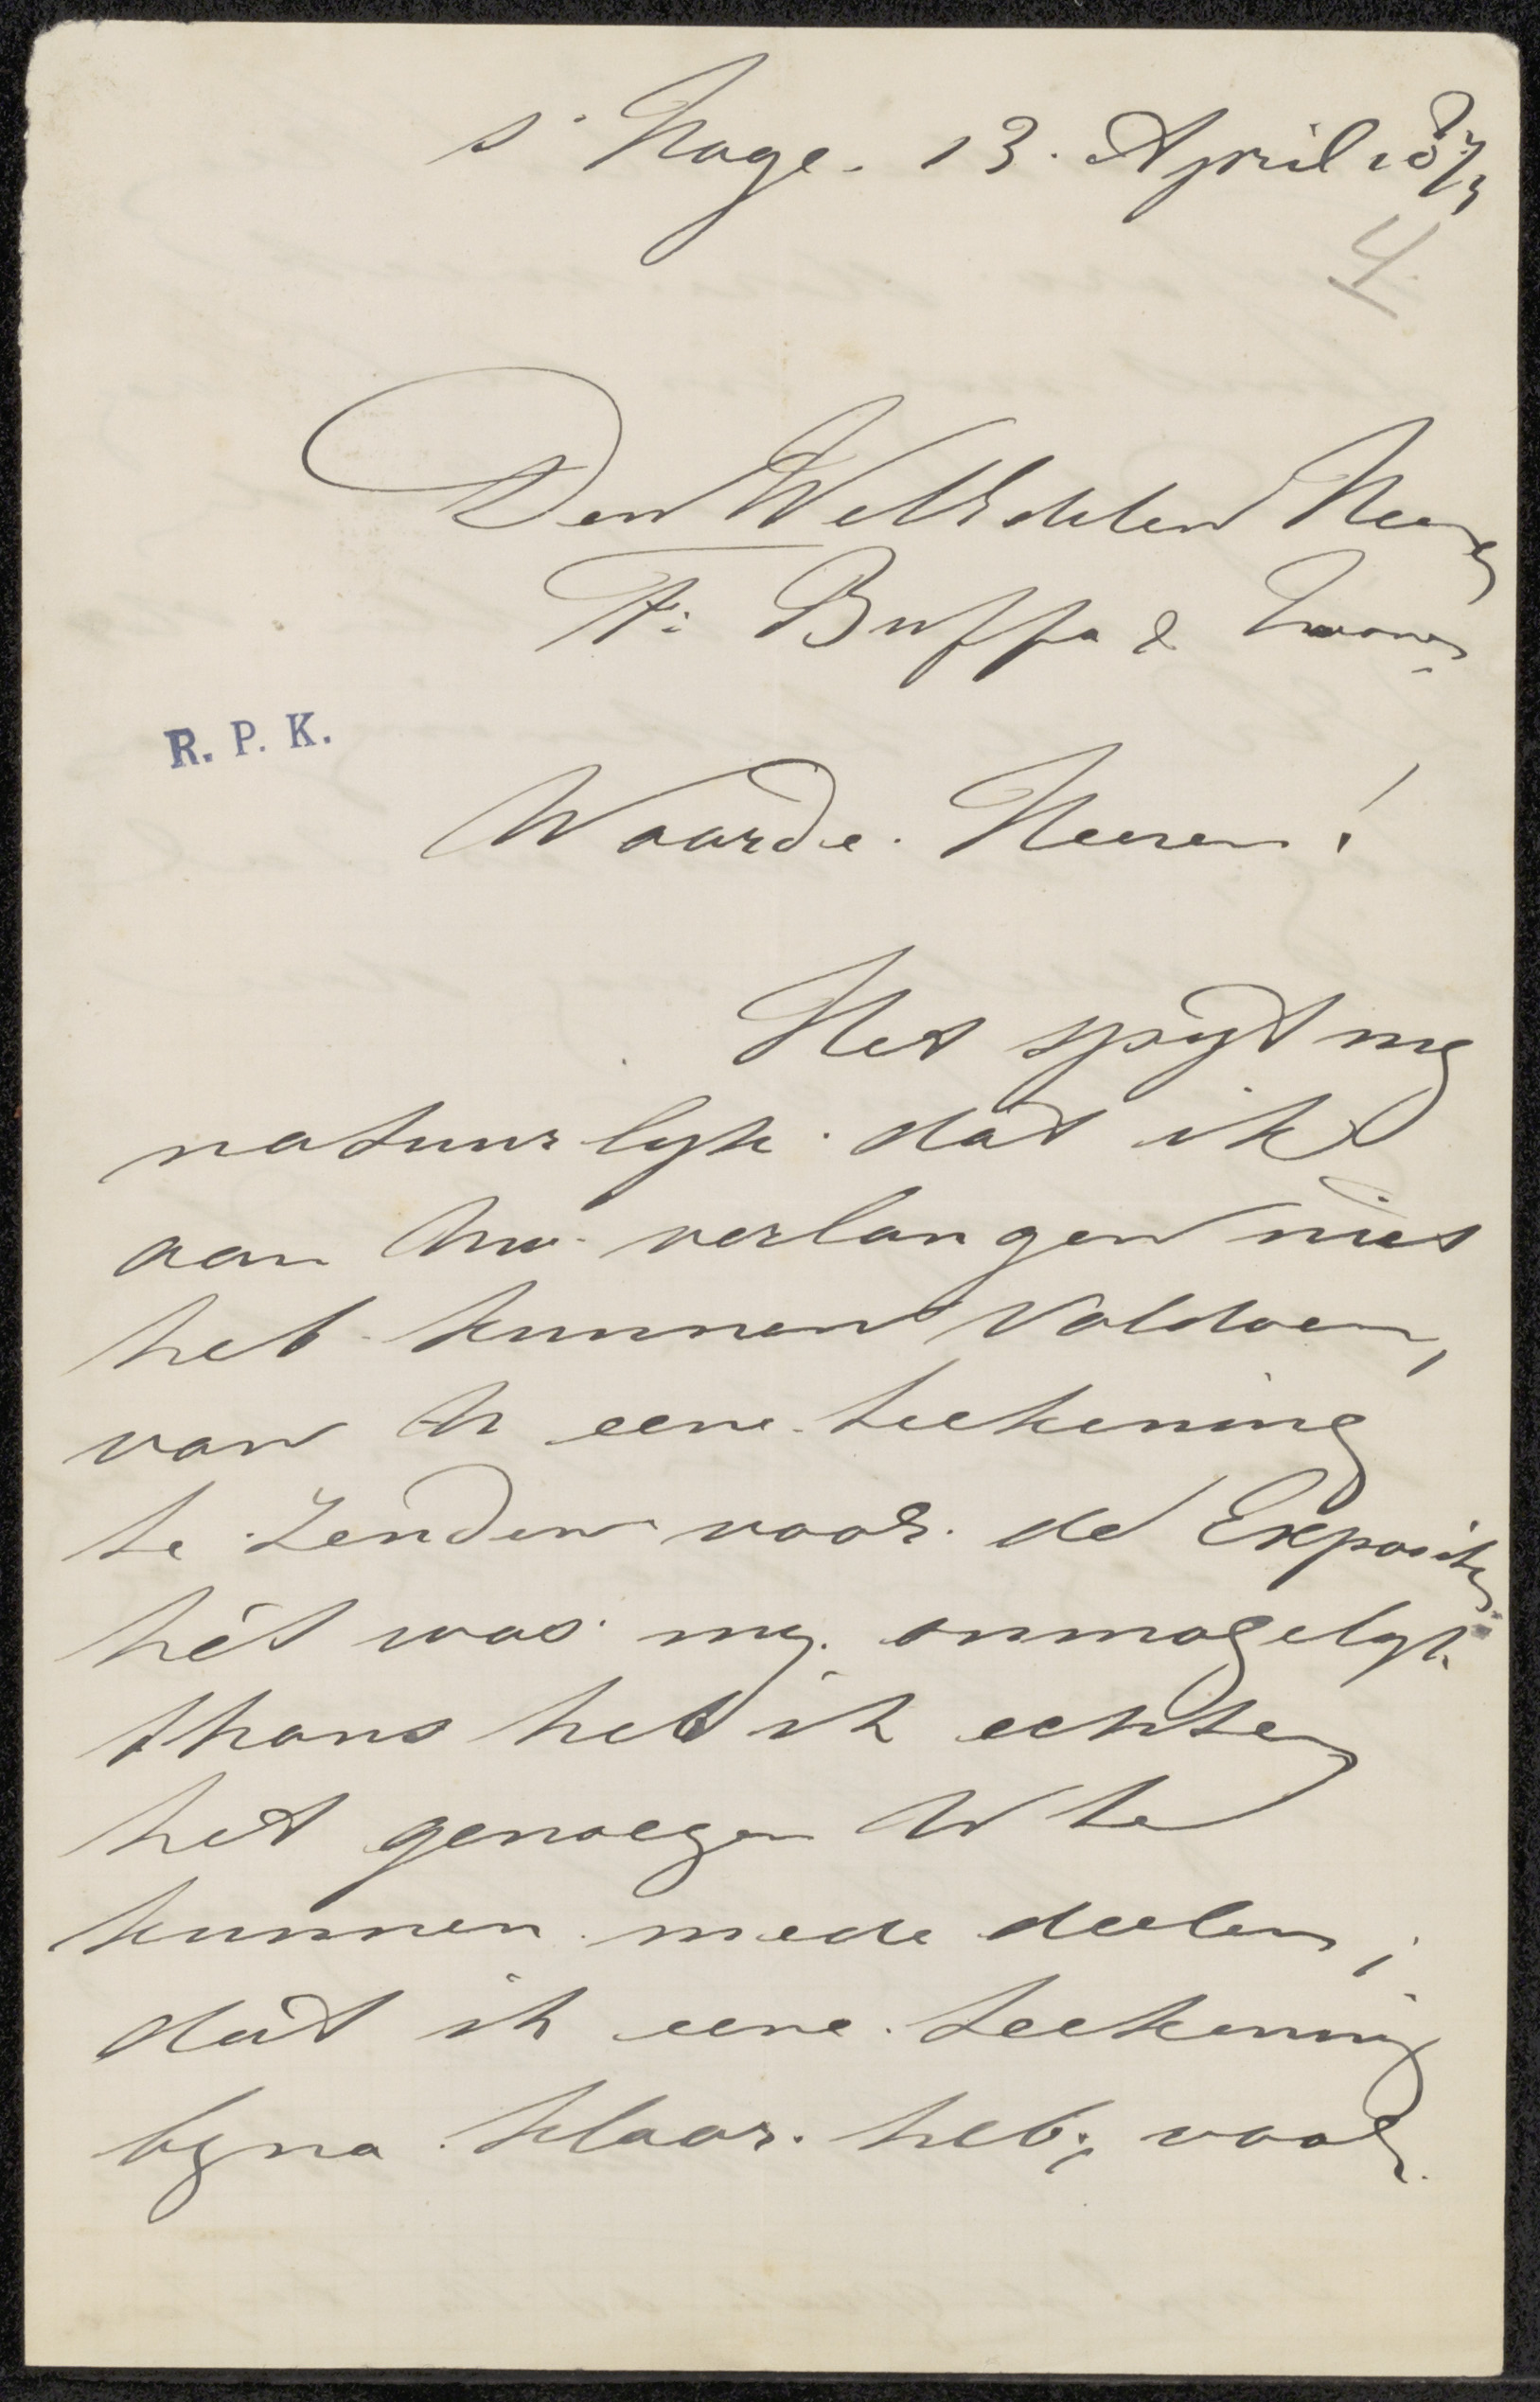 s' Hage. 13. April 18
4
Den WelEdelen Heer
F: Buffa & Zoonen
R. P. K.
Waarde. Heeren!
Het spijt mij
natuurlijk dat ik
aan Uw verlangen niet
heb kunnen voldoen,
van U eene teekening
te zenden voor de Expositie
hét was mij onmogelijk
thans heb ik echter
het genoegen U te
kunnen mede deelen,
dat ik eene teekening
bijna klaar heb, voor